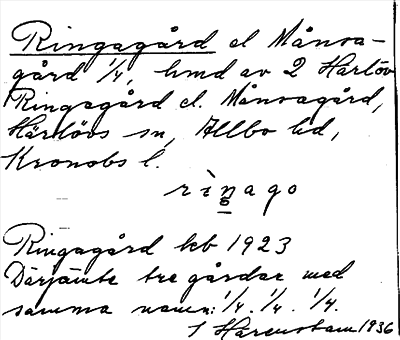 Ringagård el Månsa-
gård 1/4, hmd av 2 Härlöv
Ringagård el. Månsagård,
Härlövs sn, Allbo hd,
Kronobs l.
rìn̥ago
Ringagård kb 1923
Därjämte tre gårdar med
samma namn: 1/4. 1/4. 1/4.
J Harenstam 1936